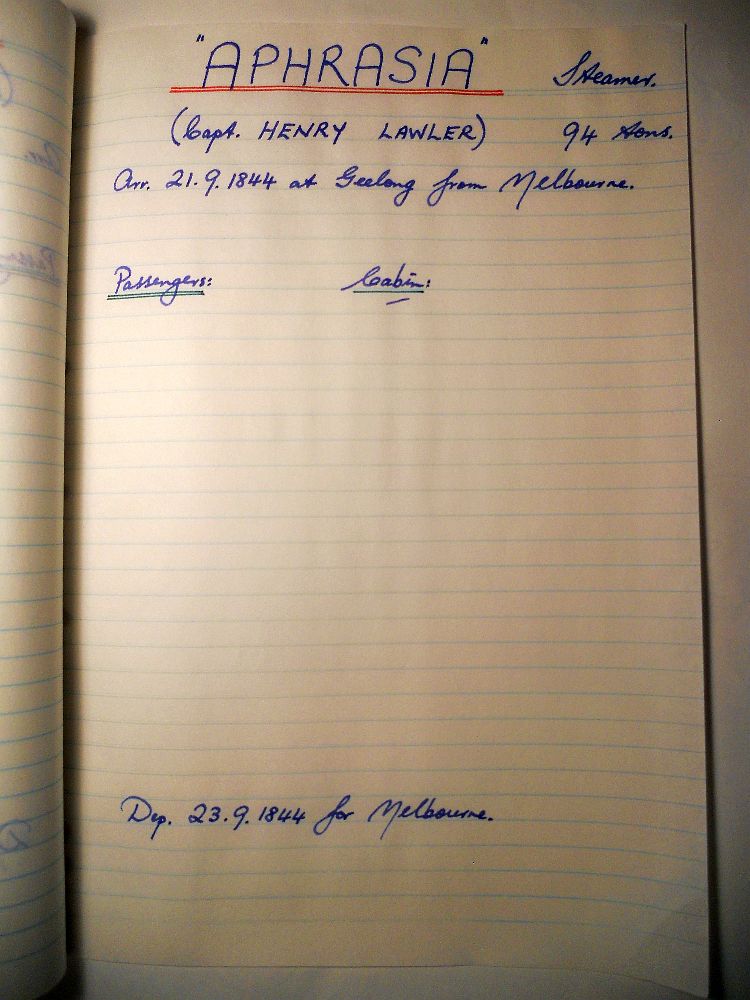 "APHRASIA" Steamer.
(Capt. HENRY LAWLER) 94 tons.
Arr. 21.9.1844 at Geelong from Melbourne.
Passengers: Cabin:
Dep. 23.9.1844 for Melbourne.